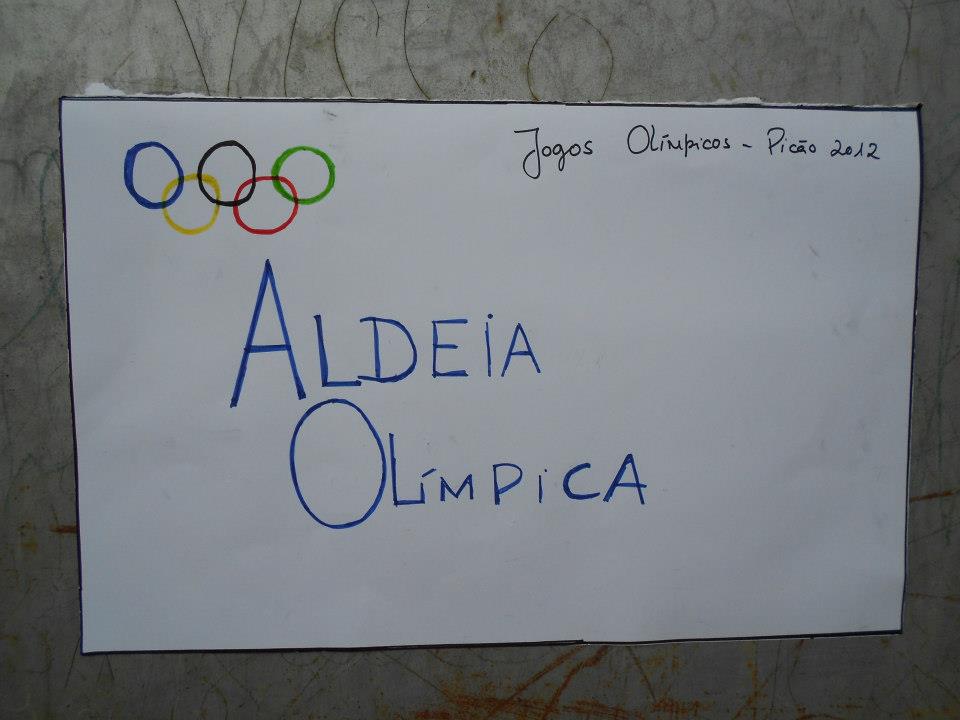 Jogos Olímpicos - Picão 2012
ALDEiA
OLíMPiCA